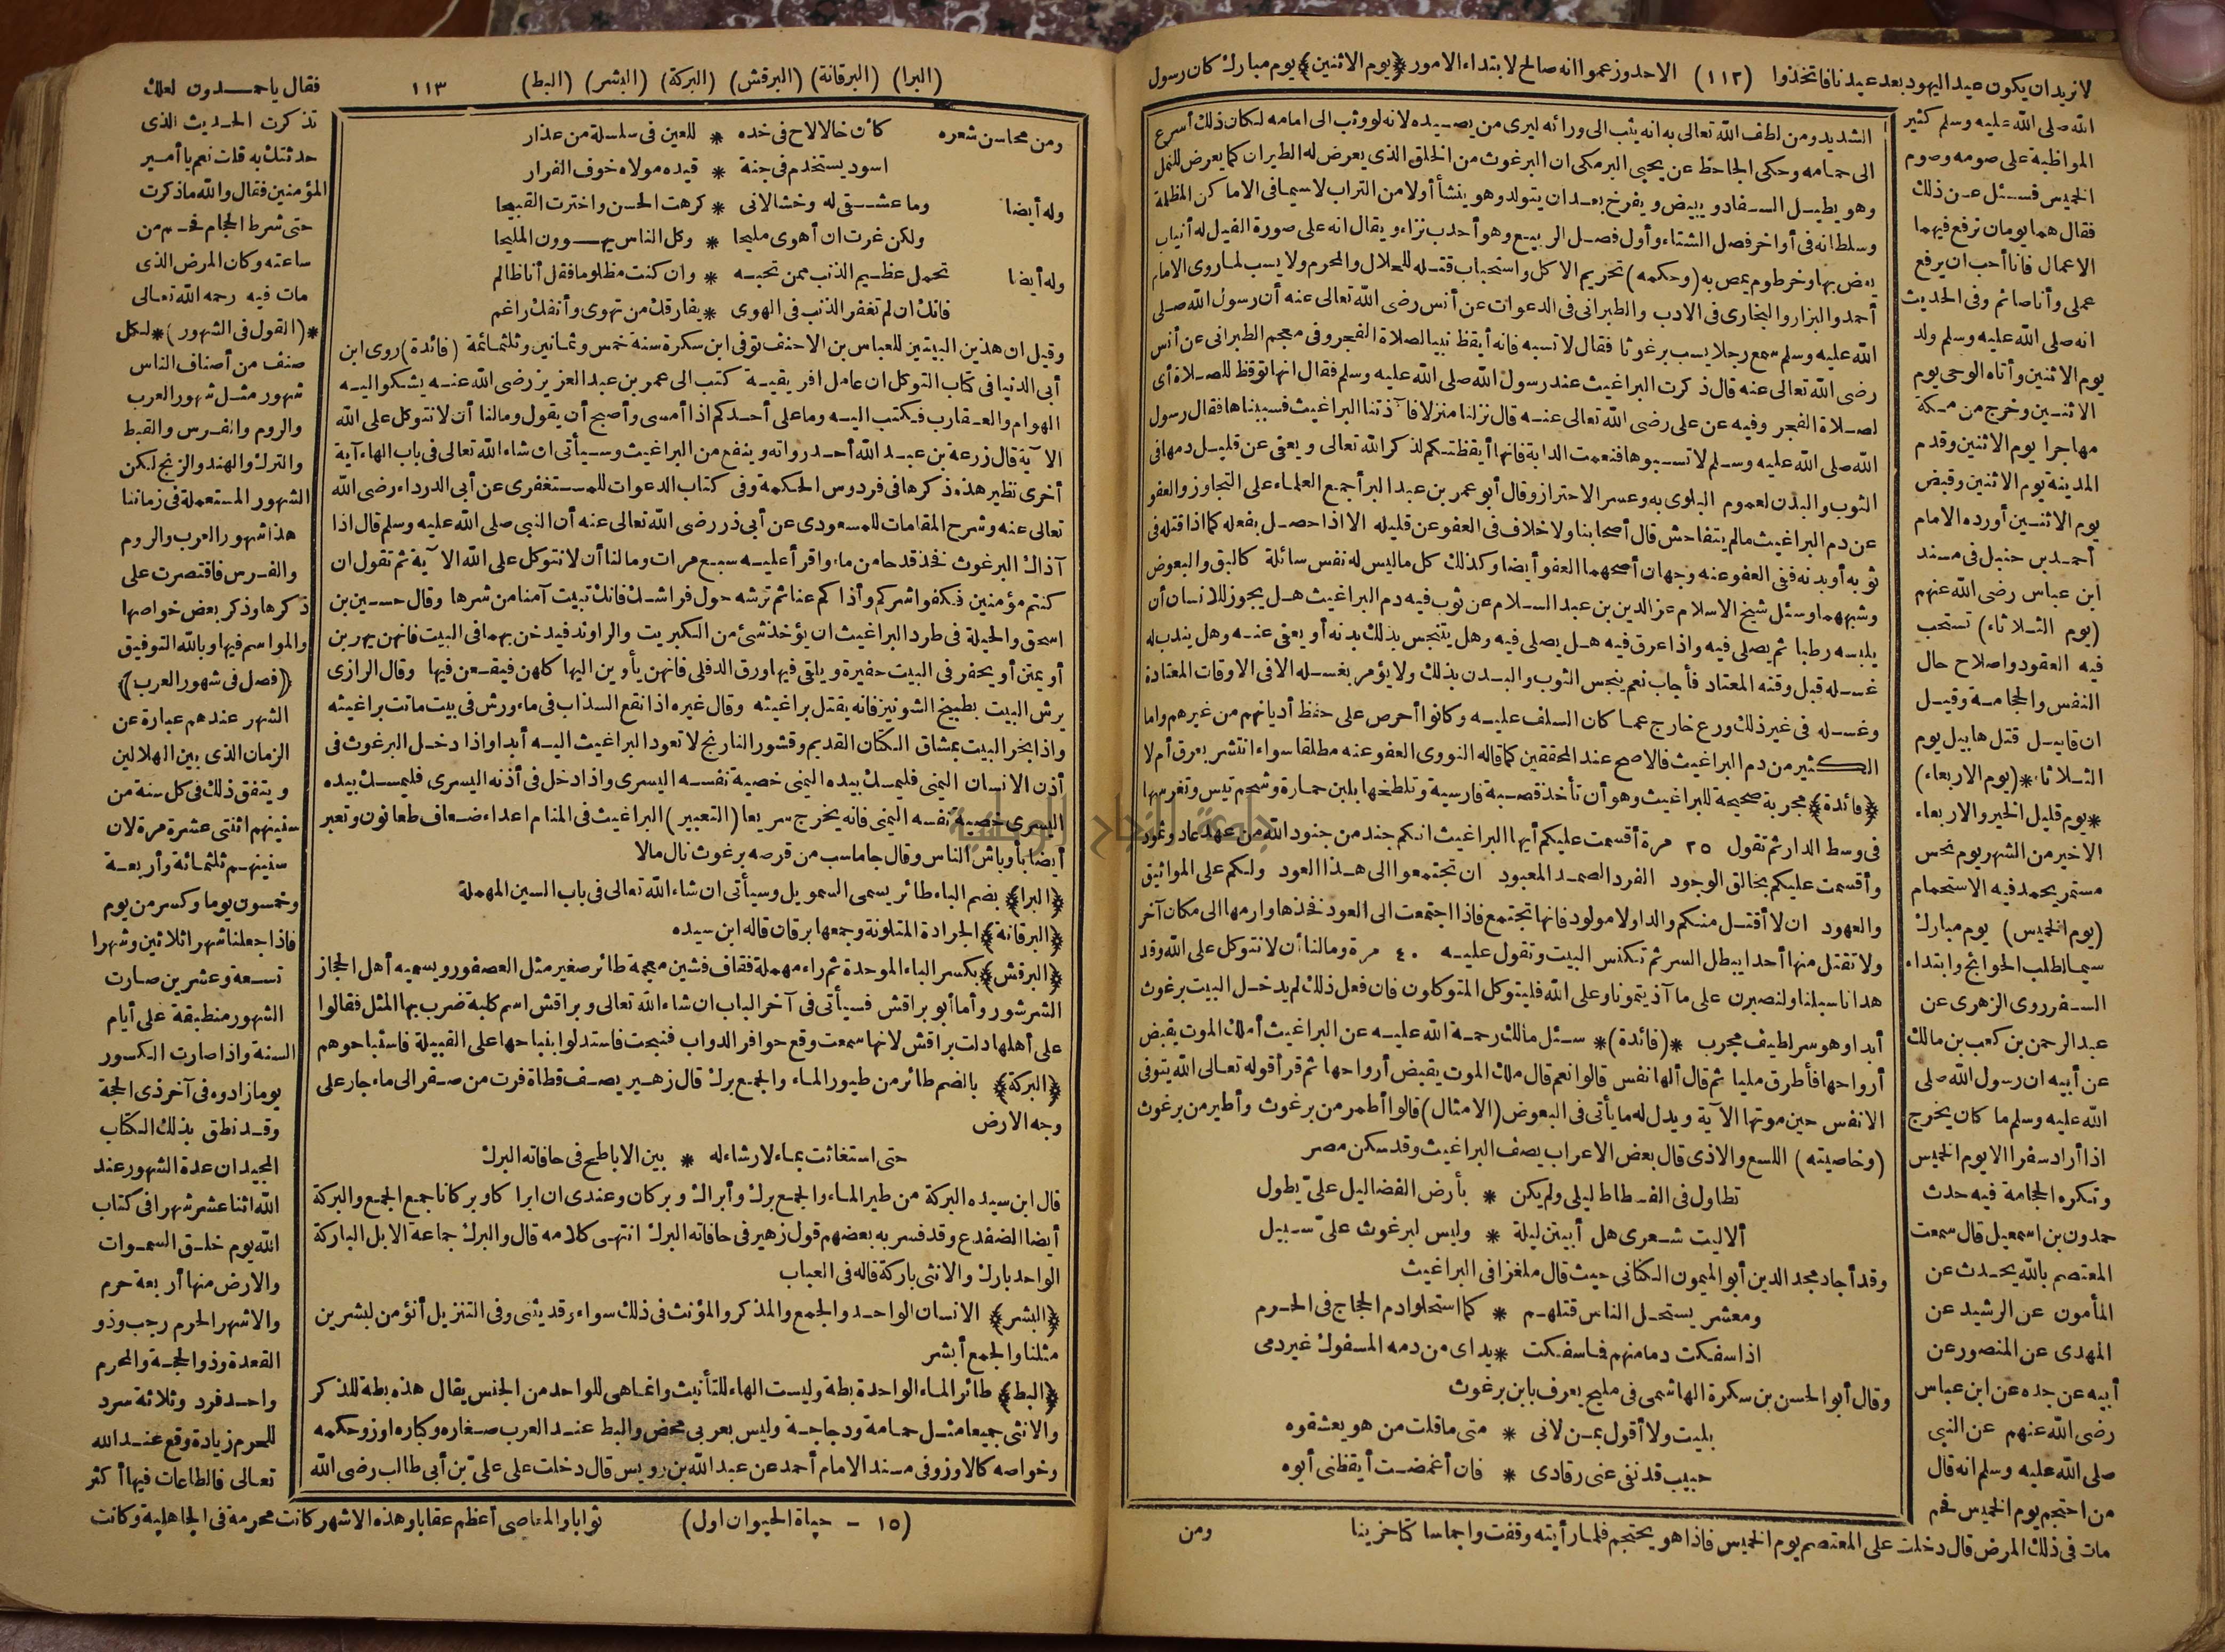 لانريدان يكون عيد اليهود بعد عيدنا فاتخذوا (١١٢) الاحد وزعموا انه صالح لابتداء الامور ﴿يوم الاثنين﴾ يوم مبارك كان رسول
الله صلى الله عليه وسلم كثير
المواظبة على صومه وصوم
الخميس فسئل عن ذلك
فقال هما يومان ترفع فيهما
الاعمال فانا أحب ان يرفع
عملى وأنا صائم وفى الحديث
انه صلى الله عليه وسلم ولد
يوم الاثنين وأتاه الوحى يوم
الاثنين وخرج من مكة
مهاجرا يوم الاثنين وقدم
المدينة يوم الاثنين وقبض
يوم الاثنين أورده الامام
أحمد بن حنبل فى مسند
ابن عباس رضى الله عنهم
(يوم الثلاثاء) تستحب
فيه العقود واصلاح حال
النفس والحجامة وقيل
ان قابيل قتل هابيل يوم
الثلاثاء *(يوم الاربعاء)
* يوم قليل الخير والاربعاء
الاخير من الشهر يوم نحس
مستمر يحمد فيه الاستحمام
(يوم الخميس) يوم مبارك
سيما لطلب الحوائج وابتداء
السفر روى الزهرى عن
عبد الرحمن بن كعب بن مالك
عن أبيه ان رسول الله صلى
الله عليه وسلم ما كان يخرج
اذا أراد سفرا الا يوم الخميس
وتكره الحجامة فيه حدث
حمدون بن اسمعيل قال سمعت
المعتصم بالله يحدث عن
المأمون عن الرشيد عن
المهدى عن المنصور عن
أبيه عن جده عن ابن عباس
رضى الله عنهم عن النبى
صلى الله عليه وسلم انه قال
من احتجم يوم الخميس فحم
مات فى ذلك المرض قال دخلت على المعتصم يوم الخميس فاذا هو يحتجم فلما رأيته وقفت واجما ساكتا حزينا
الشديد ومن لطف الله تعالى به انه يثب الى ورائه ليرى من يصيده لانه لو وثب الى امامه لكان ذلك أسرع
الى حمامه وحكى الجاحظ عن يحيى البرمكى ان البرغوث من الخلق الذى يعرض له الطيران كما يعرض للنمل
وهو يطيل السفاد ويبيض ويفرخ بعد ان يتولد وهو ينشأ أولا من التراب لا سيما فى الاماكن المظلمة
وسلطانه فى أواخر فصل الشتاء وأول فصل الربيع وهو أحدب نزاء ويقال انه على صورة الفيل له أنياب
يعض بها وخرطوم يمص به (وحكمه) تحريم الاكل واستحباب قتله للحلال والمحرم ولا يسب لما روى الامام
أحمد والبزار والبخارى فى الادب والطبرانى فى الدعوات عن أنس رضى الله تعالى عنه أن رسول الله صلى
الله عليه وسلم سمع رجلا يسب برغوثا فقال لا تسبه فانه أيقظ نبيا لصلاة الفجر وفى معجم الطبرانى عن أنس
رضى الله تعالى عنه قال ذكرت البراغيث عند رسول الله صلى الله عليه وسلم فقال انها توقظ للصلاة أى
لصلاة الفجر وفيه عن على رضى الله تعالى عنه قال نزلنا منزلا فآذتنا البراغيث فسببناها فقال رسول
الله صلى الله عليه وسلم لا تسبوها فنعمت الدابة فانها أيقظتكم لذكر الله تعالى ويعفى عن قليل دمها فى
الثوب والبدن لعموم البلوى به وعسر الاحتراز وقال أبو عمر بن عبد البر أجمع العلماء على التجاوز والعفو
عن دم البراغيث مالم يتفاحش قال أصحابنا ولا خلاف فى العفو عن قليله الا اذا حصل بفعله كما اذا قتله فى
ثوبه أو بدنه ففى العفو عنه وجهان أصحهما العفو أيضا وكذلك كل ما ليس له نفس سائلة كالبق والبعوض
وشبههما وسئل شيخ الاسلام عز الدين بن عبد السلام عن ثوب فيه دم البراغيث هل يجوز للانسان أن
يلبسه رطبا ثم يصلى فيه واذا عرق فيه هل يصلى فيه وهل يتنجس بذلك بدنه أو يعفى عنه وهل يندب له
غسله قبل وقته المعتاد فأجاب نعم ينجس الثوب والبدن بذلك ولا يؤمر بغسله الا فى الاوقات المعتادة
وغسله فى غير ذلك ورع خارج عما كان السلف عليه وكانوا أحرص على حفظ أديانهم من غيرهم واما
الكثير من دم البراغيث فالاصح عند المحققين كما قاله النووى العفو عنه مطلقا سواء انتشر بعرق أم لا
﴿فائدة﴾ مجربة صحيحة للبراغيث وهو أن تأخذ قصبة فارسية وتلطخها بلبن حمارة وشحم تيس وتغرسها
فى وسط الدار ثم تقول ٢٥ مرة أقسمت عليكم أيها البراغيث انكم جند من جنود الله من عهد عاد وثمود
وأقسمت عليكم بخالق الوجود الفرد الصمد المعبود ان تجتمعوا الى هذا العود ولكم على المواثيق
والعهود ان لا أقتل منكم والدا ولا مولود فانها تجتمع فاذا اجتمعت الى العود فخذها وارمها الى مكان آخر
ولا تقتل منها أحدا يبطل السر ثم تكنس البيت وتقول عليه ٤٠ مرة ومالنا أن لا نتوكل على الله وقد
هدانا سبلنا ولنصبرن على ما آذيتمونا وعلى الله فليتوكل المتوكلون فان فعل ذلك لم يدخل البيت برغوث
أبدا وهو سر لطيف مجرب *(فائدة)* سئل مالك رحمة الله عليه عن البراغيث أملك الموت يقبض
أرواحها فأطرق مليا ثم قال ألها نفس قالوا نعم قال ملك الموت يقبض أرواحها ثم قرأ قوله تعالى الله يتوفى
الانفس حين موتها الآية ويدل له ما يأتى فى البعوض (الامثال) قالوا أطمر من برغوث وأطير من برغوث
(وخاصيته) اللسع والاذى قال بعض الاعراب يصف البراغيث وقد سكن مصر
تطاول فى الفسطاط ليلى ولم يكن * بأرض الفضا ليل علىّ يطول
ألا ليت شعرى هل أبيتن ليلة * وليس لبرغوث علىّ سبيل
وقد أجاد مجد الدين أبو الميمون الكنانى حيث قال ملغزا فى البراغيث
ومعشر يستحل الناس قتلهم * كما استحلوا دم الحجاج فى الحرم
اذا سفكت دما منهم فما سفكت * يداى من دمه المسفوك غير دمى
وقال أبو الحسن بن سكرة الهاشمى فى مليح يعرف بابن برغوث
بليت ولا أقول بمن لانى * متى ما قلت من هو يعشقوه
حبيب قد نفى عنى رقادى * فان أغمضت أيقظنى أبوه
ومن
(البرا) (البرقانة) (البرقش) (البركة) (البشر) (البط) ١١٣
ومن محاسن شعره كأن خالا لاح فى خده * للعين فى سلسلة من عذار
اسود يستخدم فى جنة * قيده مولاه خوف الفرار
وله أيضا وما عشقى له وحشا لانى * كرهت الحسن واخترت القبيحا
ولكن غرت ان أهوى مليحا * وكل الناس يهوون المليحا
وله أيضا تحمل عظيم الذنب ممن تحبه * وان كنت مظلوما فقل أنا ظالم
فانك ان لم تغفر الذنب فى الهوى * يفارقك من تهوى وأنفك راغم
وقيل ان هذين البيتين للعباس بن الاحنف توفى ابن سكرة سنة خمس وثمانين وثلثمائة (فائدة) روى ابن
أبى الدنيا فى كتاب التوكل ان عامل افريقية كتب الى عمر بن عبد العزيز رضى الله عنه يشكو اليه
الهوام والعقارب فكتب اليه وما على أحدكم اذا أمسى وأصبح أن يقول ومالنا أن لا نتوكل على الله
الآية قال زرعة بن عبد الله أحد رواته وينفع من البراغيث وسيأتى ان شاء الله تعالى فى باب الهاء آية
أخرى نظير هذه ذكرها فى فردوس الحكمة وفى كتاب الدعوات للمستغفرى عن أبى الدرداء رضى الله
تعالى عنه وشرح المقامات للمسعودى عن أبى ذر رضى الله تعالى عنه أن النبى صلى الله عليه وسلم قال اذا
آذاك البرغوث فخذ قدحا من ماء واقرأ عليه سبع مرات ومالنا أن لا نتوكل على الله الآية ثم تقول ان
كنتم مؤمنين فكفوا شركم وأذاكم عنا ثم ترشه حول فراشك فانك تبيت آمنا من شرها وقال حسين بن
اسحق والحيلة فى طرد البراغيث ان يؤخذ شئ من الكبريت والراوند فيدخن بهما فى البيت فانهن يهربن
أو يمتن أو يحفر فى البيت حفيرة ويلقى فيها ورق الدفلى فانهن يأوين اليها كلهن فيقعن فيها وقال الرازى
يرش البيت بطبيخ الشونيز فانه يقتل براغيثه وقال غيره اذا نقع السذاب فى ماء ورش فى بيت ماتت براغيثه
واذا بخر البيت بمشاق الكتان القديم وقشور النارنج لا تعود البراغيث اليه أبدا واذا دخل البرغوث فى
أذن الانسان اليمنى فليمسك بيده اليمنى خصية نفسه اليسرى واذا دخل فى أذنه اليسرى فليمسك بيده
اليسرى خصية نفسه اليمنى فانه يخرج سريعا (التعبير) البراغيث فى المنام اعداء ضعاف طعانون وتعبر
أيضا بأوباش الناس وقال جاماسب من قرصه برغوث نال مالا
﴿البرا﴾ بضم الباء طائر يسمى السمويل وسيأتى ان شاء الله تعالى فى باب السين المهملة
﴿البرقانة﴾ الجرادة المتلونة وجمعها برقان قاله ابن سيده
﴿البرقش﴾ بكسر الباء الموحدة ثم راء مهملة فقاف فشين معجمة طائر صغير مثل العصفور ويسميه أهل الحجاز
الشرشور وأما أبو براقش فسيأتى فى آخر الباب ان شاء الله تعالى وبراقش اسم كلبة ضرب بها المثل فقالوا
على أهلها دلت براقش لانها سمعت وقع حوافر الدواب فنبحت فاستدلوا بنباحها على القبيلة فاستباحوهم
﴿البركة﴾ بالضم طائر من طيور الماء والجمع برك قال زهير يصف قطاة فرت من صقر الى ماء جار على
وجه الارض
حتى استغاثت بماء لا رشاء له * بين الاباطح فى حافاته البرك
قال ابن سيده البركة من طير الماء والجمع برك وأبراك وبركان وعندى ان ابراكا وبركانا جمع الجمع والبركة
أيضا الضفدع وقد فسر به بعضهم قول زهير فى حافاته البرك انتهى كلامه قال والبرك جماعة الابل الباركة
الواحد بارك والانثى باركة قاله فى العباب
﴿البشر﴾ الانسان الواحد والجمع والمذكر والمؤنث فى ذلك سواء وقد يثنى وفى التنزيل أنؤمن لبشرين
مثلنا والجمع أبشر
﴿البط﴾ طائر الماء الواحدة بطة وليست الهاء للتأنيث وانما هى للواحد من الجنس يقال هذه بطة للذكر
والانثى جميعا مثل حمامة ودجاجة وليس بعربى محض والبط عند العرب صغاره وكباره اوز وحكمه
وخواصه كالاوز وفى مسند الامام أحمد عن عبد الله بن رويس قال دخلت على علىّ بن أبى طالب رضى الله
(١٥ - حياة الحيوان اول)
فقال يا حمدون لعلك
تذكرت الحديث الذى
حدثتك به قلت نعم يا أمير
المؤمنين فقال والله ما ذكرت
حتى شرط الحجام فحم من
ساعته وكان المرض الذى
مات فيه رحمه الله تعالى
*(القول فى الشهور)* لكل
صنف من أصناف الناس
شهور مثل شهور العرب
والروم والفرس والقبط
والترك والهند والزنج لكن
الشهور المستعملة فى زماننا
هذا شهور العرب والروم
والفرس فاقتصرت على
ذكرها وذكر بعض خواصها
والمواسم فيها وبالله التوفيق
﴿فصل فى شهور العرب﴾
الشهر عندهم عبارة عن
الزمان الذى بين الهلالين
ويتفق ذلك فى كل سنة من
سنينهم اثنتى عشرة مرة لان
سنينهم ثلثمائة وأربعة
وخمسون يوما وكسر من يوم
فاذا جعلنا شهرا ثلاثين وشهرا
تسعة وعشرين صارت
الشهور منطبقة على أيام
السنة واذا صارت الكسور
يوما زادوه فى آخر ذى الحجة
وقد نطق بذلك الكتاب
المجيد ان عدة الشهور عند
الله اثنا عشر شهرا فى كتاب
الله يوم خلق السموات
والارض منها أربعة حرم
والاشهر الحرم رجب وذو
القعدة وذو الحجة والمحرم
واحد فرد وثلاثة سرد
للمحرم زيادة وقع عند الله
تعالى فالطاعات فيها أكثر
ثوابا والمعاصى أعظم عقابا وهذه الاشهر كانت محرمة فى الجاهلية وكانت
جامعة النجاح الوطنية